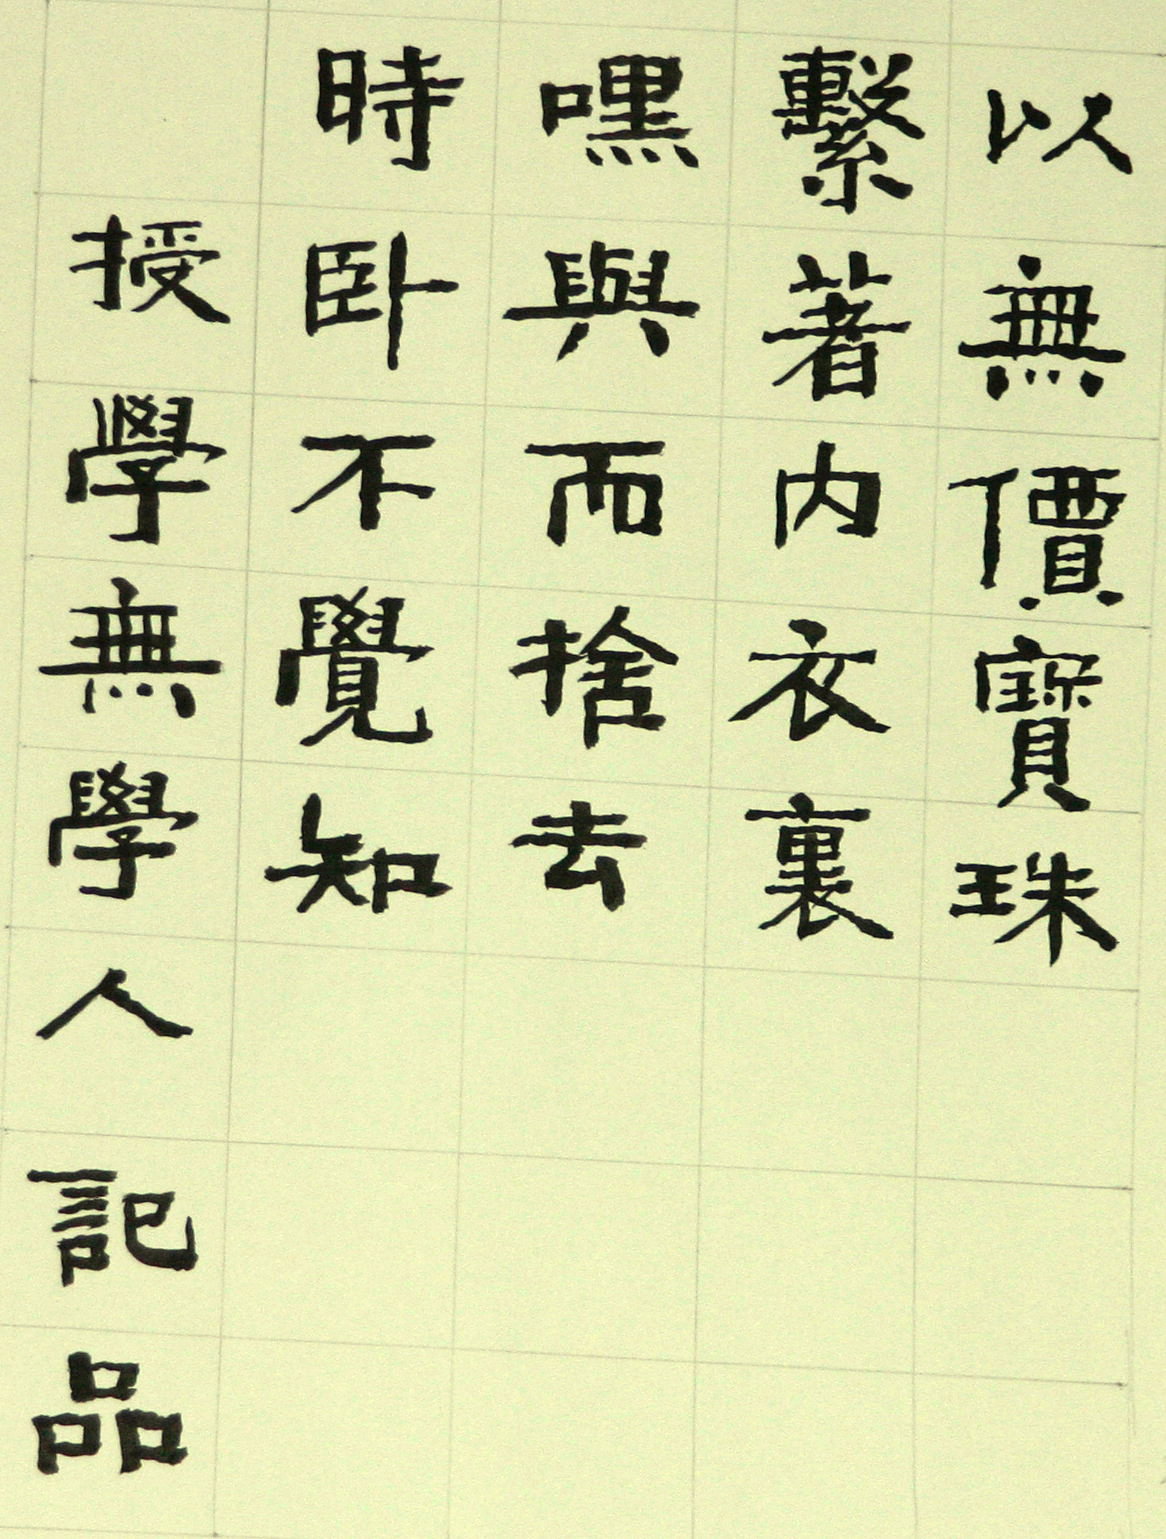 以無價寶珠
繫著內衣裏
嘿與而捨去
時卧不覺知
授學無學人記品